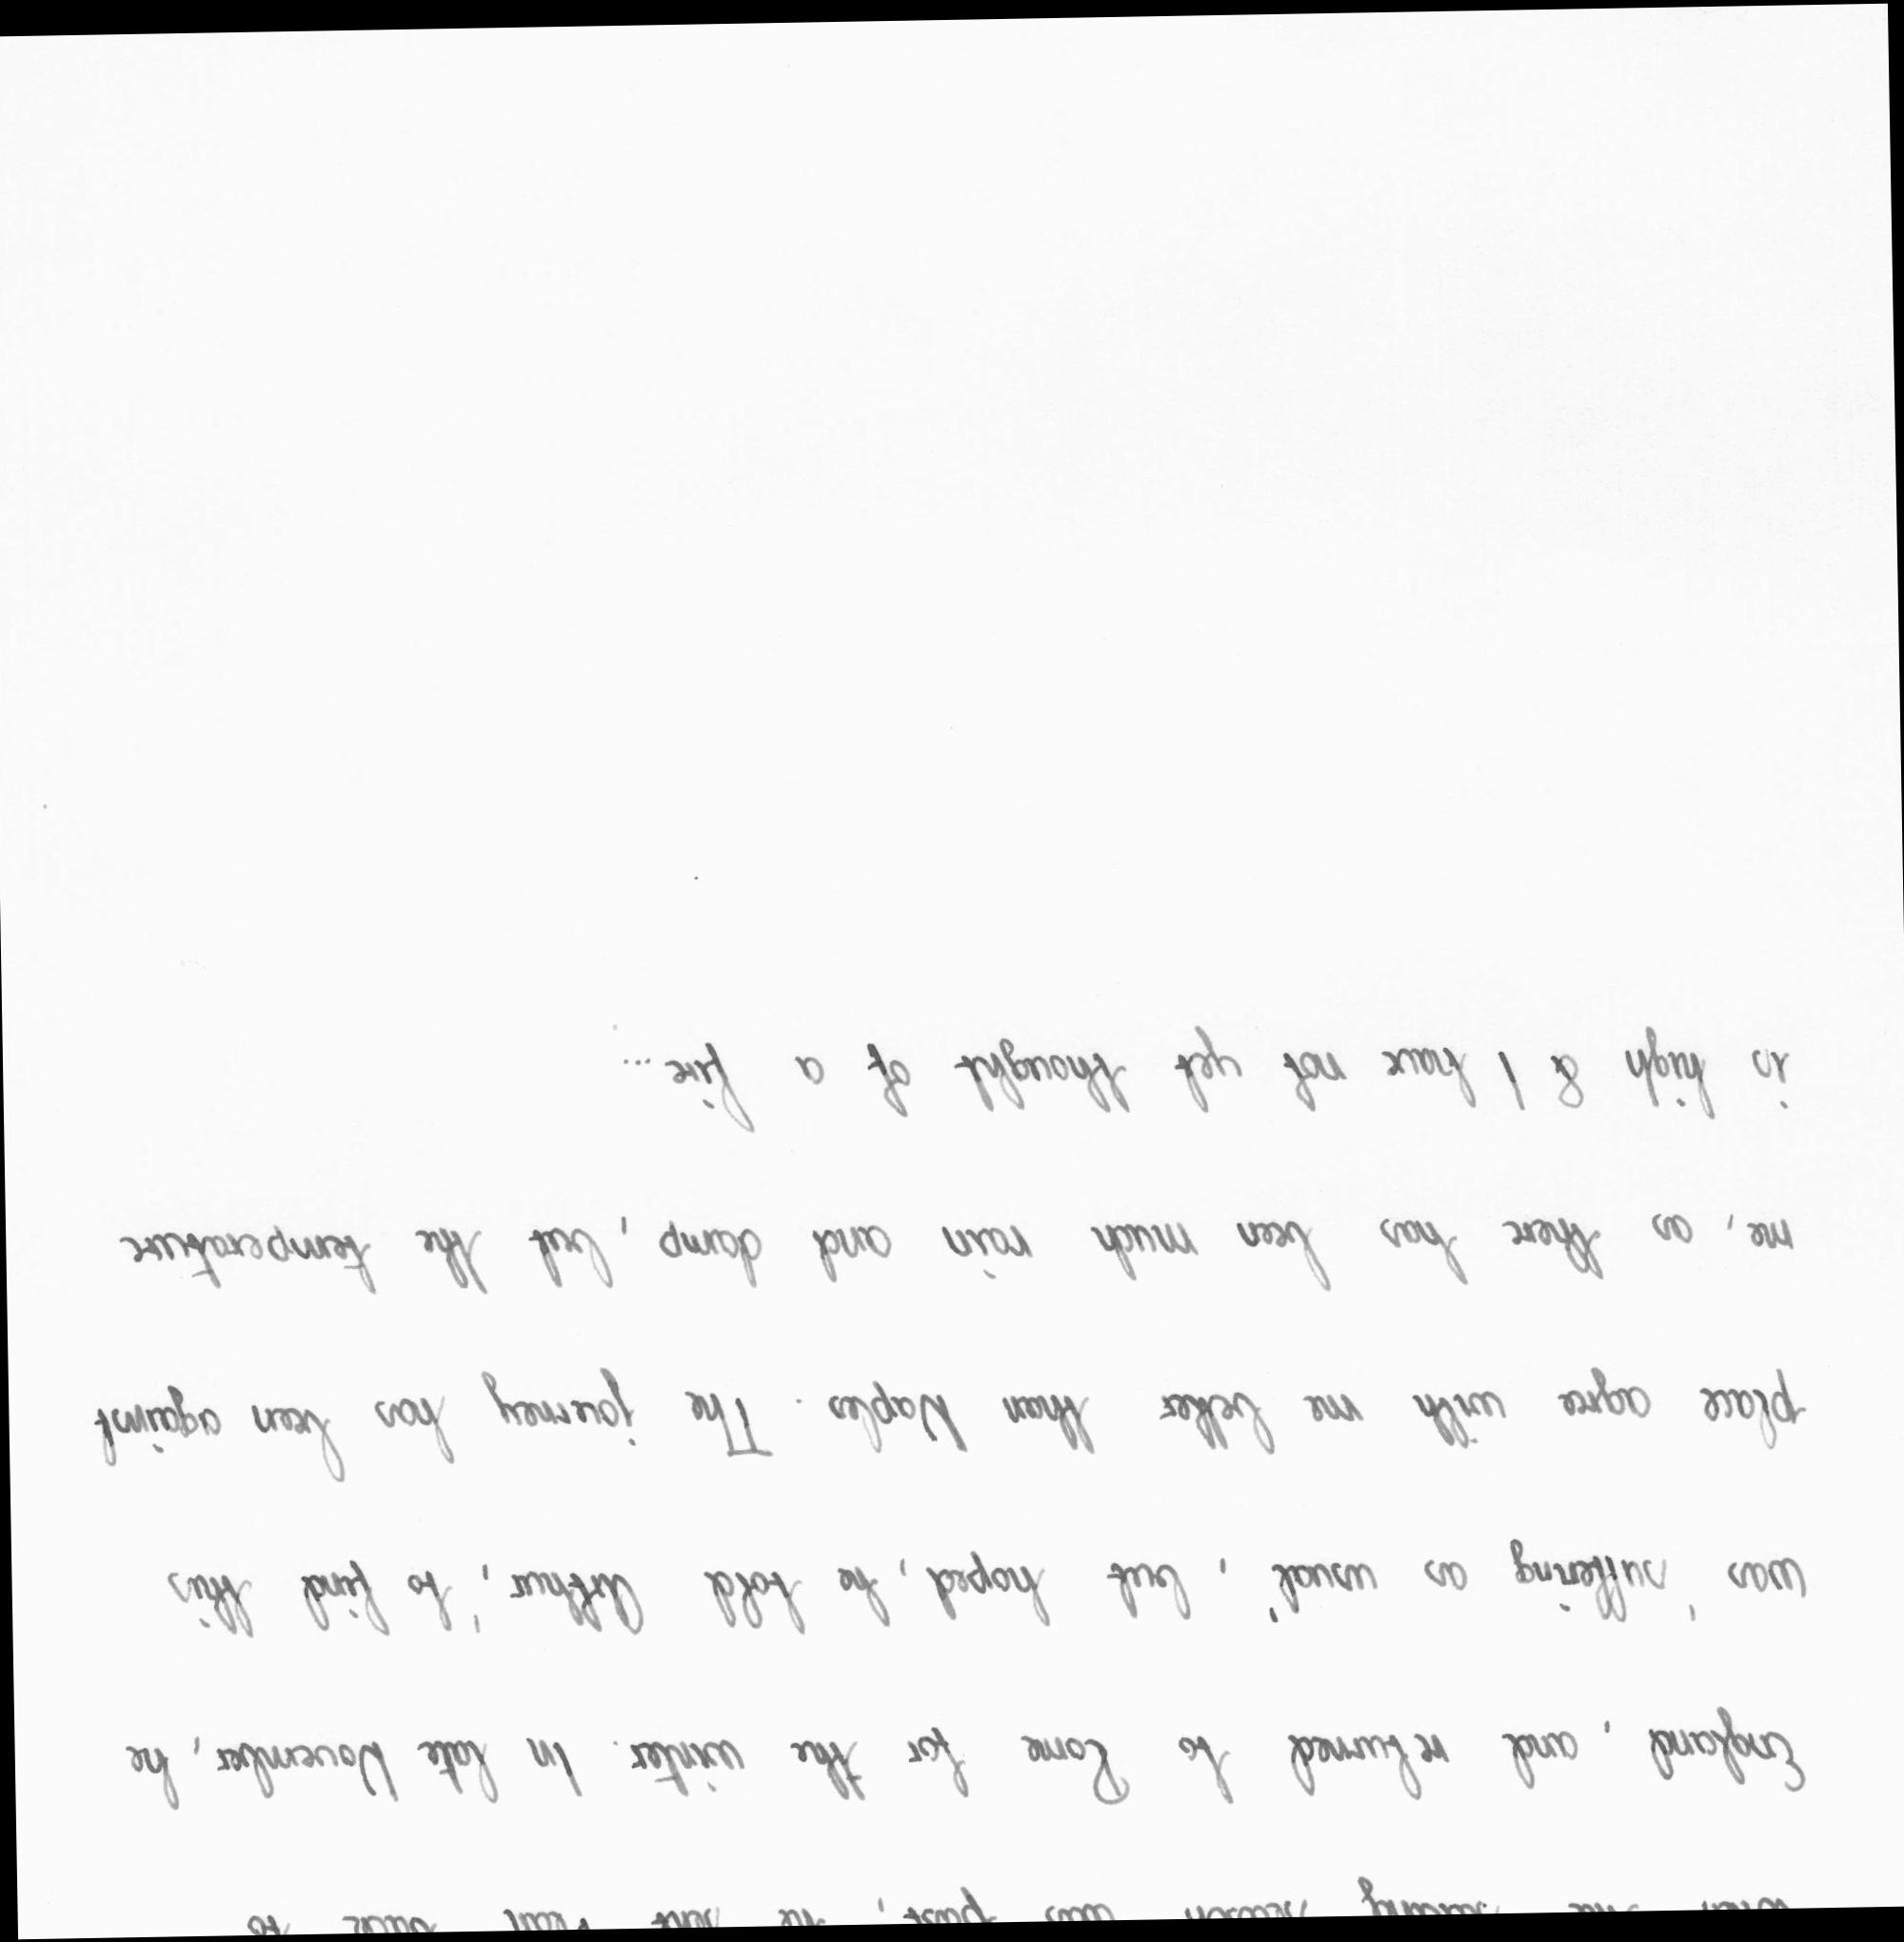 when the season was past, he sent Paul back to
England, and returned to Rome for the winter. In late November, he
was 'suffering as usual', but hoped, he told Arthur, 'to find this
place agree with me better than Naples. The jorerney has been against
me, as there has been much rain and damp, but the temperature
is high & I have not yet thought of a fire...